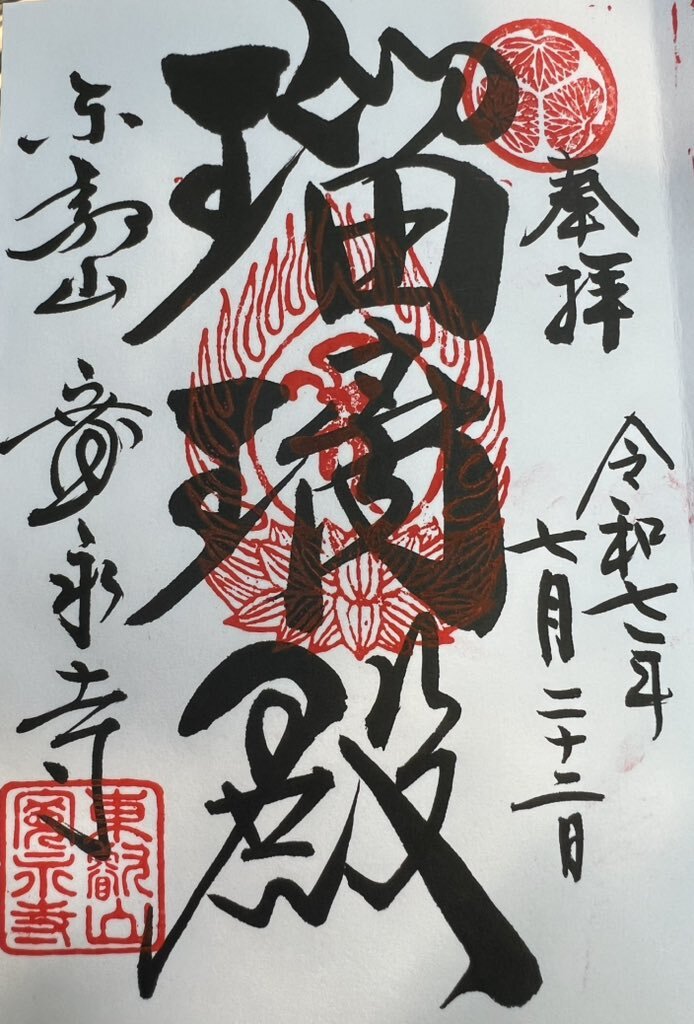 奉拝
令和七年
七月二十二日
瑠璃殿
東叡山 寛永寺
東叡山
寛永寺